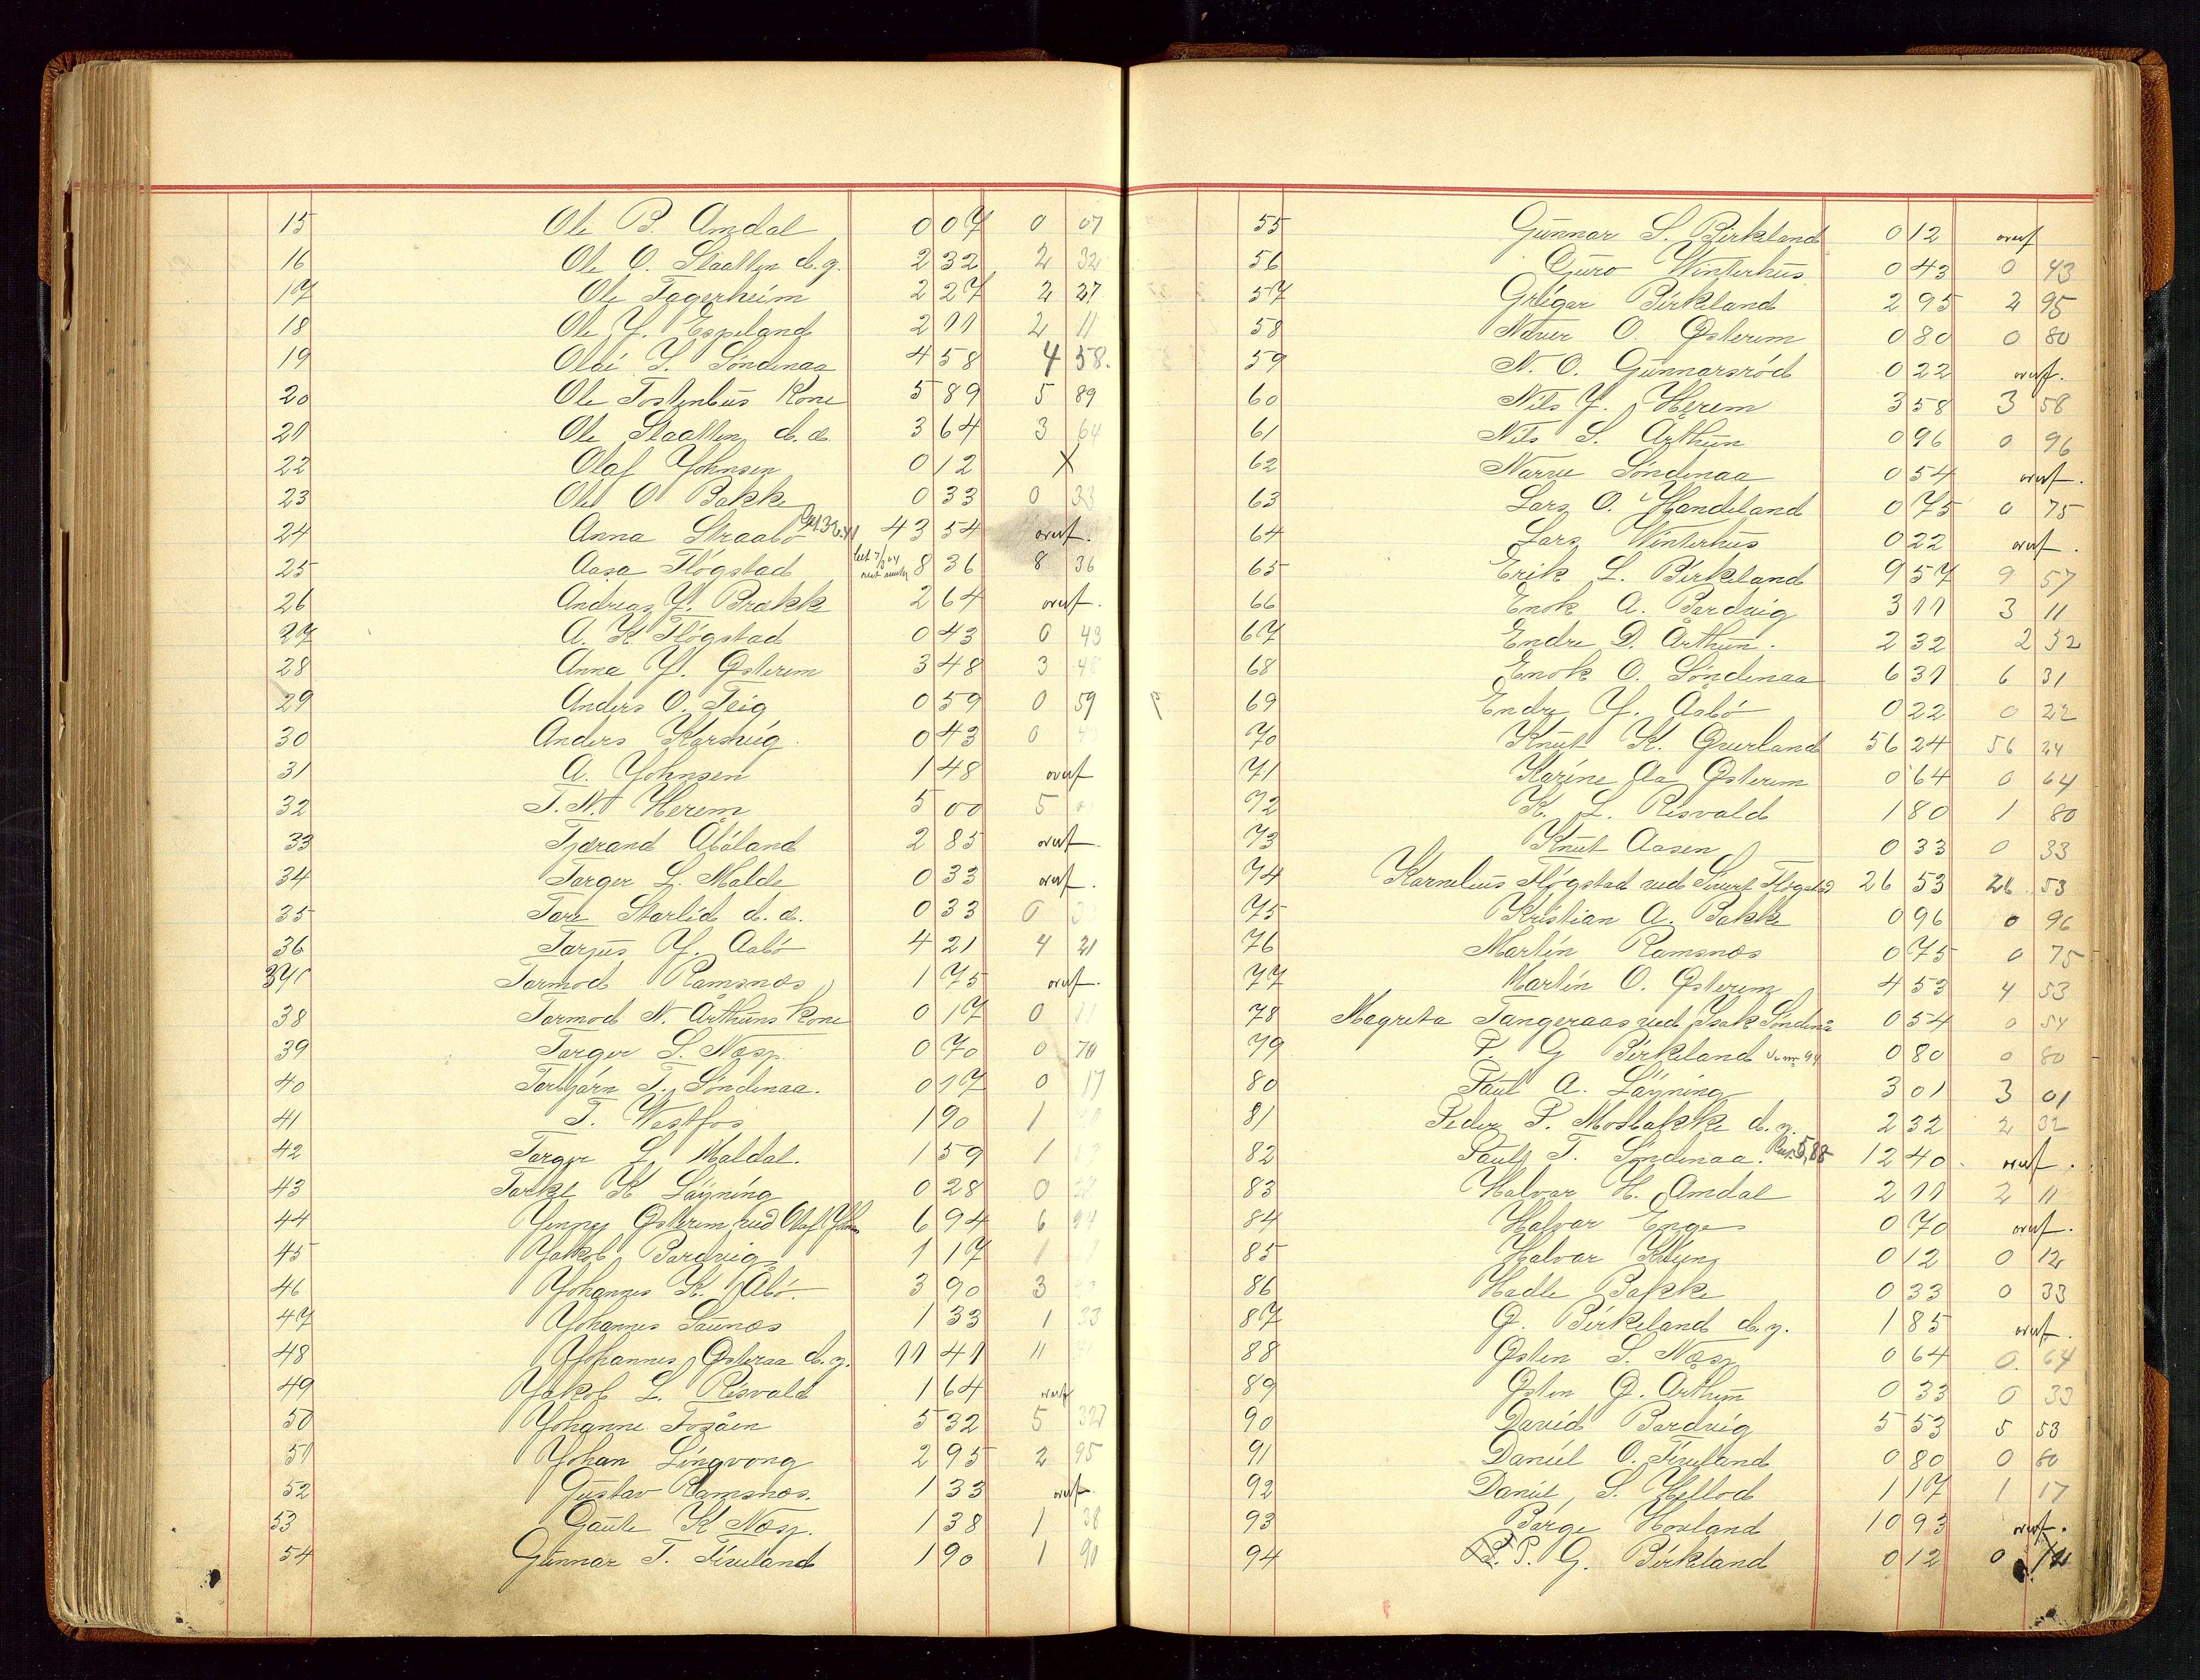 15 Ole B. Amdal 0 07 0 07
16 Ole O. Slaatten d.y. 2 32 2 32
17 Ole Fagerheim 2 27 2 27
18 Ole J. Espeland 2 11 2 11
19 Olai S. Söndenaa 4 58 4 58.
20 Ole Tostenbus Kone 5 89 5 89
21 Ole Slaatten d.æ. 3 64 3 64
22 Olaf Johnsen 0 12 X
23 Ole O. Bakke 0 33 0 33
24 Anna Straabö 43 54 overf.
25 Aasa Flögstad 8 36 8 36
26 Andreas J. Brakke 2 64 overf.
27 A. K. Flögstad 0 43 0 43
28 Anna J. Österem 3 48 3 48
29 Anders O. Teig 0 59 0 59
30 Anders Karsvig. 0 43 0 4
31 A. Johnsen 1 48 overf
32 T. N. Herem 5 00 5 0
33 Tjærand Aböland 2 85 overf.
34 Torger L. Malde 0 33 overf.
35 Tore Starlid d.æ. 0 33 0 3
36 Torjus J. Aabö 4 21 4 21
37 Tormod Ramsnæs 1 75 overf.
38 Tormod N. Arthuns Kone 0 17 0 17
39 Torger L. Næss 0 70 0 70
40 Torbjörn T. Söndenaa. 0 17 0 17
41 T. Westfos 1 90 1
42 Torger L. Maldal. 1 59 1
43 Torkel K Löyning 0 28 0 28
44 Jenny Österem ved Olaf Johnsen 6 94 6 94
45 Jakob Bardvig 1 17 1
46 Johannes K. Abö. 3 90 3
47 Johannes Saunæs 1 33 1 33
48 Johannes Österaa d.y. 11 41 11 41
49 Jakob L. Risvald 1 64 overf
50 Johanne Fosåen 5 32 5 32
51 Johan Lingvang 2 95 2 95
52 Gustav Ramsnæs. 1 33 overf.
53 Gaute K Næss. 1 38 1 38
54 Gunnar T. Fiveland 1 90 1 90
55 Gunnar S. Birkeland 0 12 overf
56 Guro Vinterhus 0 43 0 43
57 Grégar Birkeland 2 95 2 95
58 Naver O. Österem 0 80 0 80
59 N. O. Gunnarsröd 0 22 overf.
60 Nils J. Herem 3 58 3 58
61 Nils S. Arthun 0 96 0 96
62 Narve Söndenaa 0 54 overf.
63 Lars O. Handeland 0 75 0 75
64 Lars Vinterhus 0 22 overf.
65 Erik L. Birkeland 9 57 9 57
66 Enok A. Bardvig 3 11 3 11
67 Endre D. Arthun. 2 32 2 32
68 Enok O. Söndenaa 6 31 6 31
69 Endre J. Aabö 0 22 0 22
70 Knut K. Överland 56 24 56 24
71 Karine Aa Österem 0 64 0 64
72 K. L. Risvald 1 80 1 80
73 Knut Aasen 0 33 0 33
74 Karnelius Flögstad ved Sivert Flögstad 26 53 26 53
75 Kristian A. Bakke 0 96 0 96
76 Martin Ramsnæs 0 75 0 75
77 Martin O. Österem 4 53 4 53
78 Magreta Tangeraas ved Isak Söndenå 0 54 0 54
79 P. G Birkeland Se nr. 94 0 80 0 80
80 Paul A. Löyning 3 01 3 01
81 Peder P. Mosbakke d.y. 2 32 2 32
82 Paul T. Söndenaa. 12 40 overf.
83 Halvor H. Amdal 2 11 2 11
84 Halvor Enge 0 70 overf.
85 Halvor Klung 0 12 0 12
86 Hadle Bakke 0 33 0 33
87 G. Birkeland d.y. 1 85 overf.
88 Östen S. Næss 0 64 0. 64
89 Östen G. Arthun 0 33 0 33
90 David Bardvig 5 53 5 53
91 Daniel O. Fiveland 0 80 0 80
92 Daniel S. Hellod 1 17 1 17
93 Börge Hovland 10 93 overf.
94 P. G. Birkeland 0 12 0 12